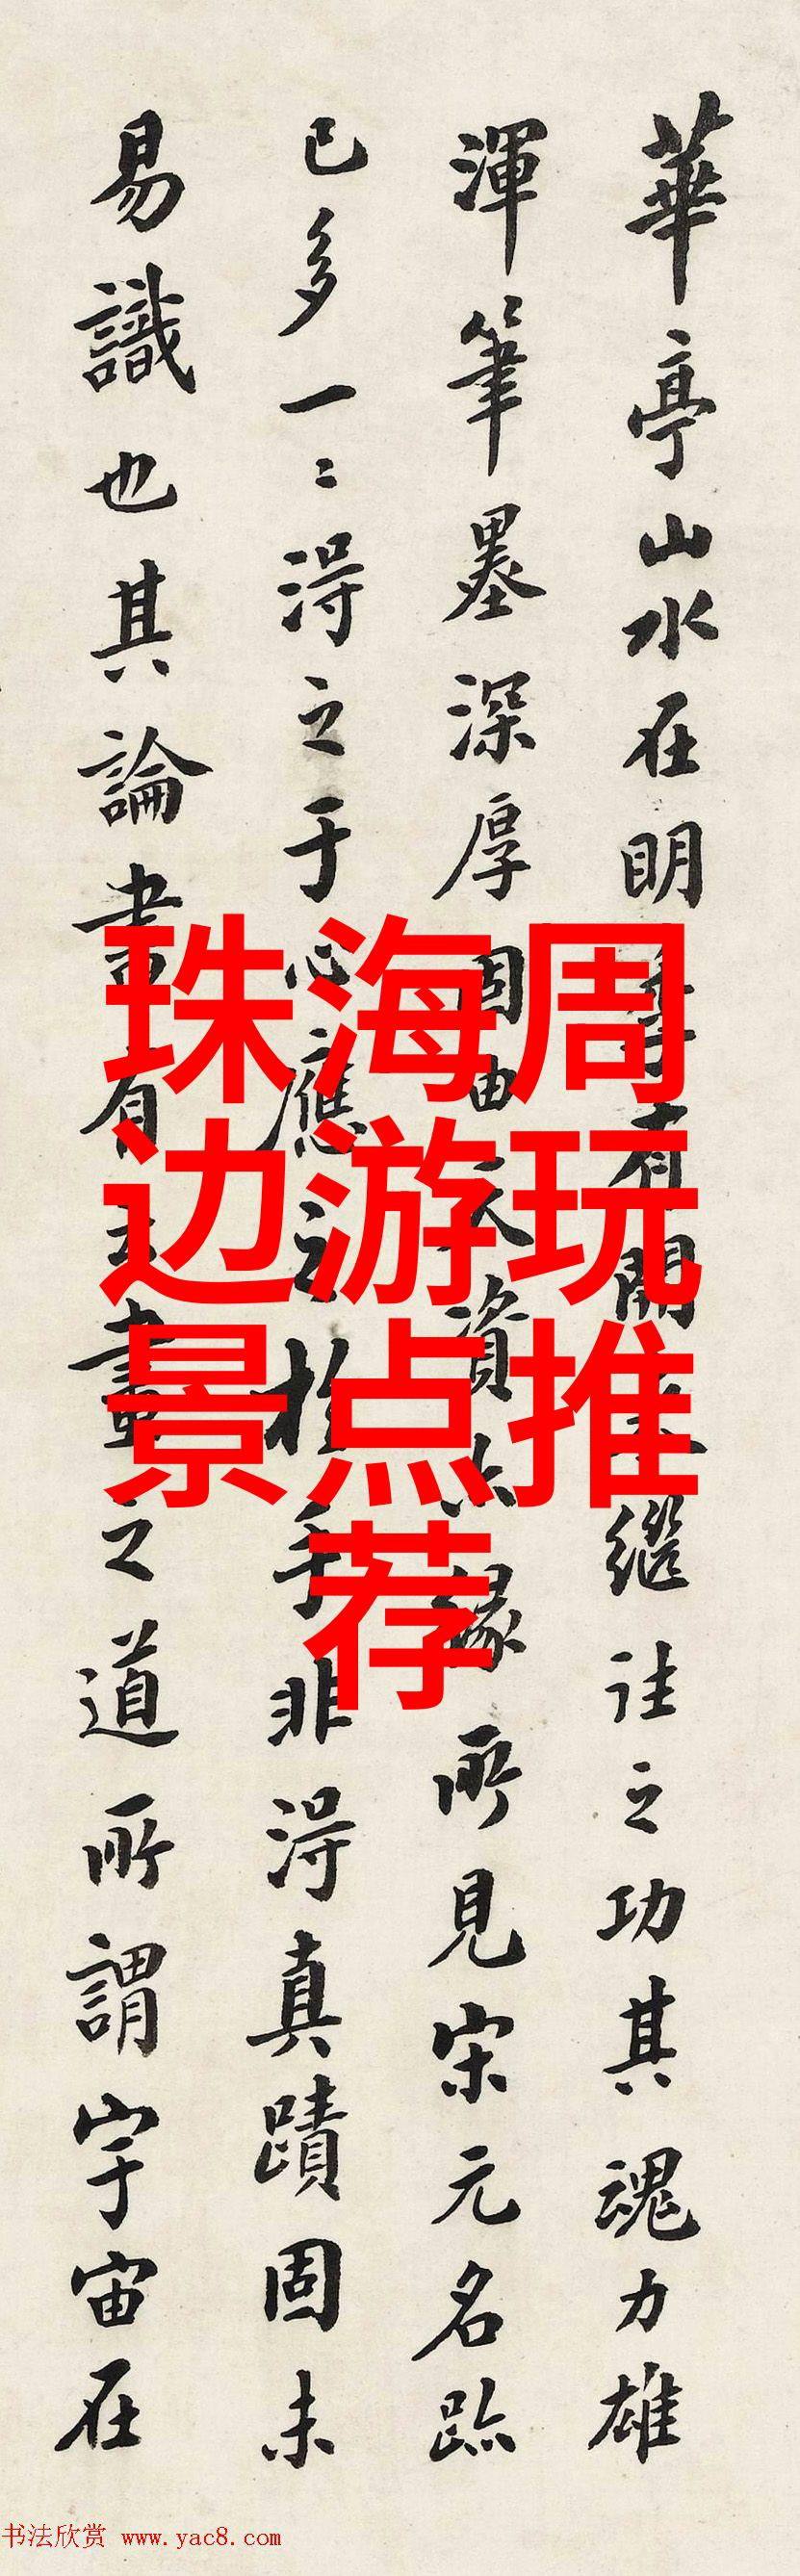 華亭山水在明季有開繼往之功其魂力雄
渾筆墨深厚固由天資亦緣所見宋元名跡
已多一二得之于心應之於手非得真蹟固未
易識也其論畫有畫之道所謂宇宙在
珠海周
边游玩
景点推
荐
书法欣赏 www.yac8.com